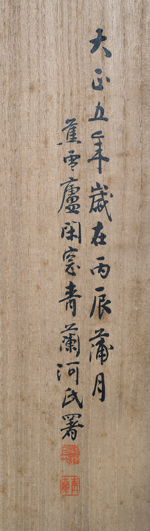 大正五年歳在丙辰蒲月
蕉雪廬閑窓青蘭河氏署